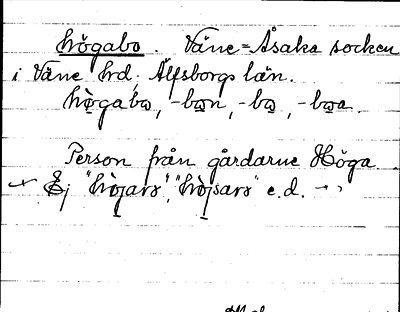 högabo. Väne-Åsaka socken
i Väne hrd. Älfsborgs län.
hö̀gabo, -bon, -bo, -boa.
Person från gårdarne Höga.
Ej "höjaro", "höjsaro" e.d. -"-